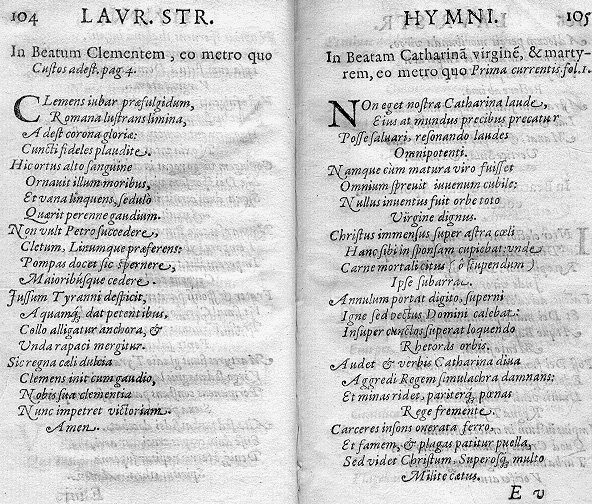 104 LAVR. STR.
In Beatum Clementem, eo metro quo
Custos adest. pag 4.
CLemens iubar præfulgidum,
Romana lustrans limina,
Adest corona gloriæ:
Cuncti fideles plaudite.
Hic ortus alto sanguine
Ornauit illum moribus,
Et vana linquens, sedulò
Quærit perenne gaudium.
Non vult Petro succedere,
Cletum, Linumque præferens:
Pompas docet sic spernere,
Maioribúsque cedere.
Jussum Tyranni despicit,
Aquamq; dat petentibus.
Collo alligatur anchora, &
Vnda rapaci mergitur.
Sic regna cæli dulcia
Clemens init cum gaudio,
Nobis sua clementia
Nunc impetret victoriam.
Amen.
HYMNI. 105
In Beatam Catharinā virginē, & marty-
rem, eo metro quo Prima currentis. fol. 1.
NOn eget nostra Catharina laude,
Eius at mundus precibus precatur
Posse saluari, resonando laudes
Omnipotenti.
Namque cùm matura viro fuisset
Omnium spreuit iuuenum cubile:
Nullus inuentus fuit orbe toto
Virgine dignus.
Christus immensus super astra cæli
Hanc sibi in sponsam cupiebat: vnde
Carne mortali citus (ô stupendum)
Ipse subarrat.
Annulum portat digito, superni
Igne sed vectus Domini calebat:
Insuper cunctos superat loquendo
Rhetoras orbis.
Audet & verbis Catharina diua
Aggredi Regem simulachra damnans:
Et minas ridet, pariterq; pœnas
Rege fremente.
Carceres insons onerata ferro,
Et famem, & plagas patitur puella,
Sed videt Christum, Superosq; multo
Milite cætus.
E v